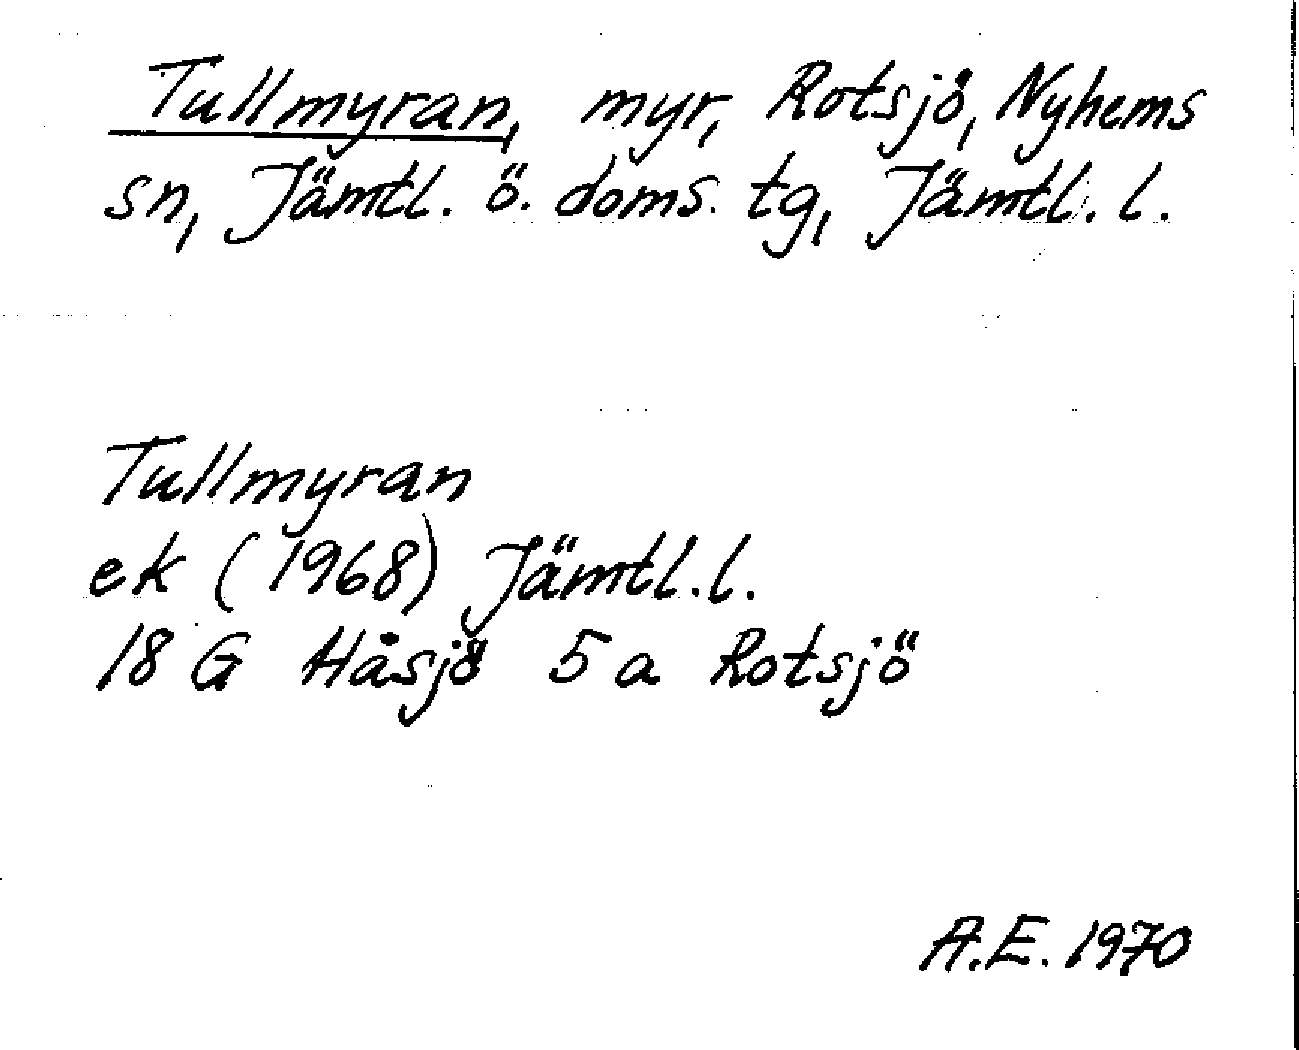 Tullmyran, myr, Rotsjö, Nyhems
sn, Jämtl. ö. doms. tg, Jämtl. l.
Tullmyran
ek (1968) Jämtl. l.
18 G Håsjö 5 a Rotsjö
A.E. 1970